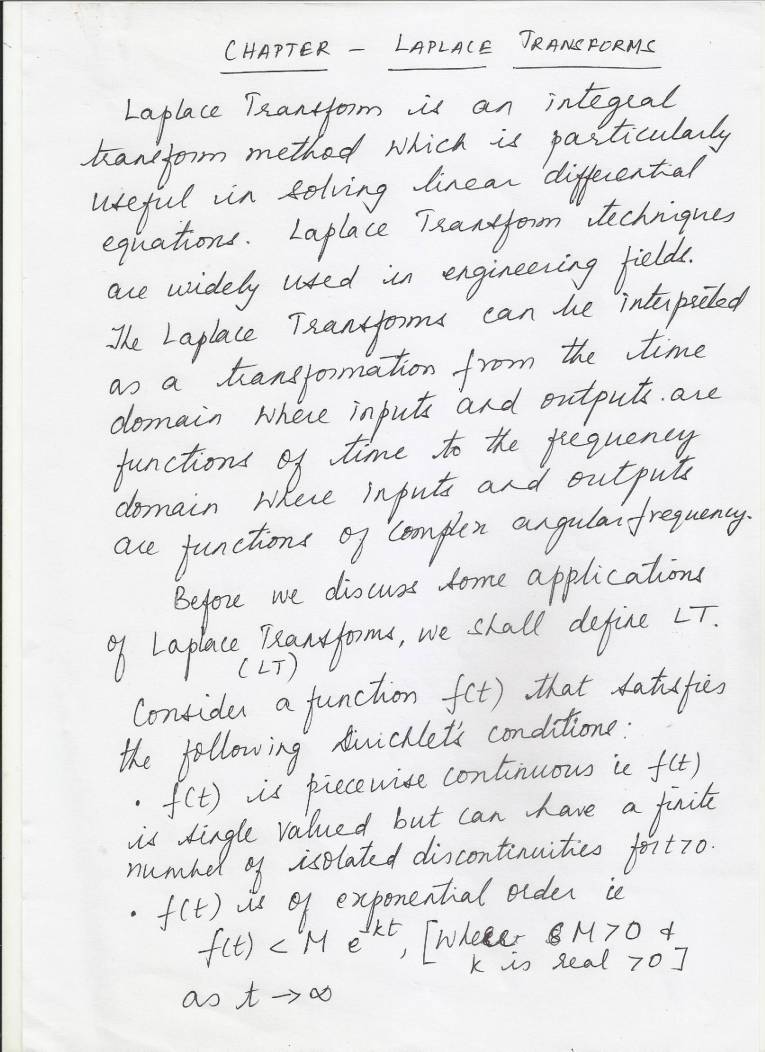 CHAPTER - LAPLACE TRANSFORMS
Laplace Transform is an integral
transform method which is particularly
useful in solving linear differential
equations. Laplace Transform techniques
are widely used in engineering fields.
The Laplace Transforms can be interpreted
as a transformation from the time
domain where inputs and outputs are
functions of time to the frequency
domain where inputs and outputs
are functions of complex angular frequency.
Before we discuss some applications
of Laplace Transforms, we shall define LT.
(LT)
Consider a function f(t) that satisfies
the following Dirichlet's conditions:
• f(t) is piecewise continuous ie f(t)
is single valued but can have a finite
number of isolated discontinuities for t>0.
• f(t) is of exponential order ie
f(t) < M e^-kt, [where M>0 &
k is real >0]
as t → ∞